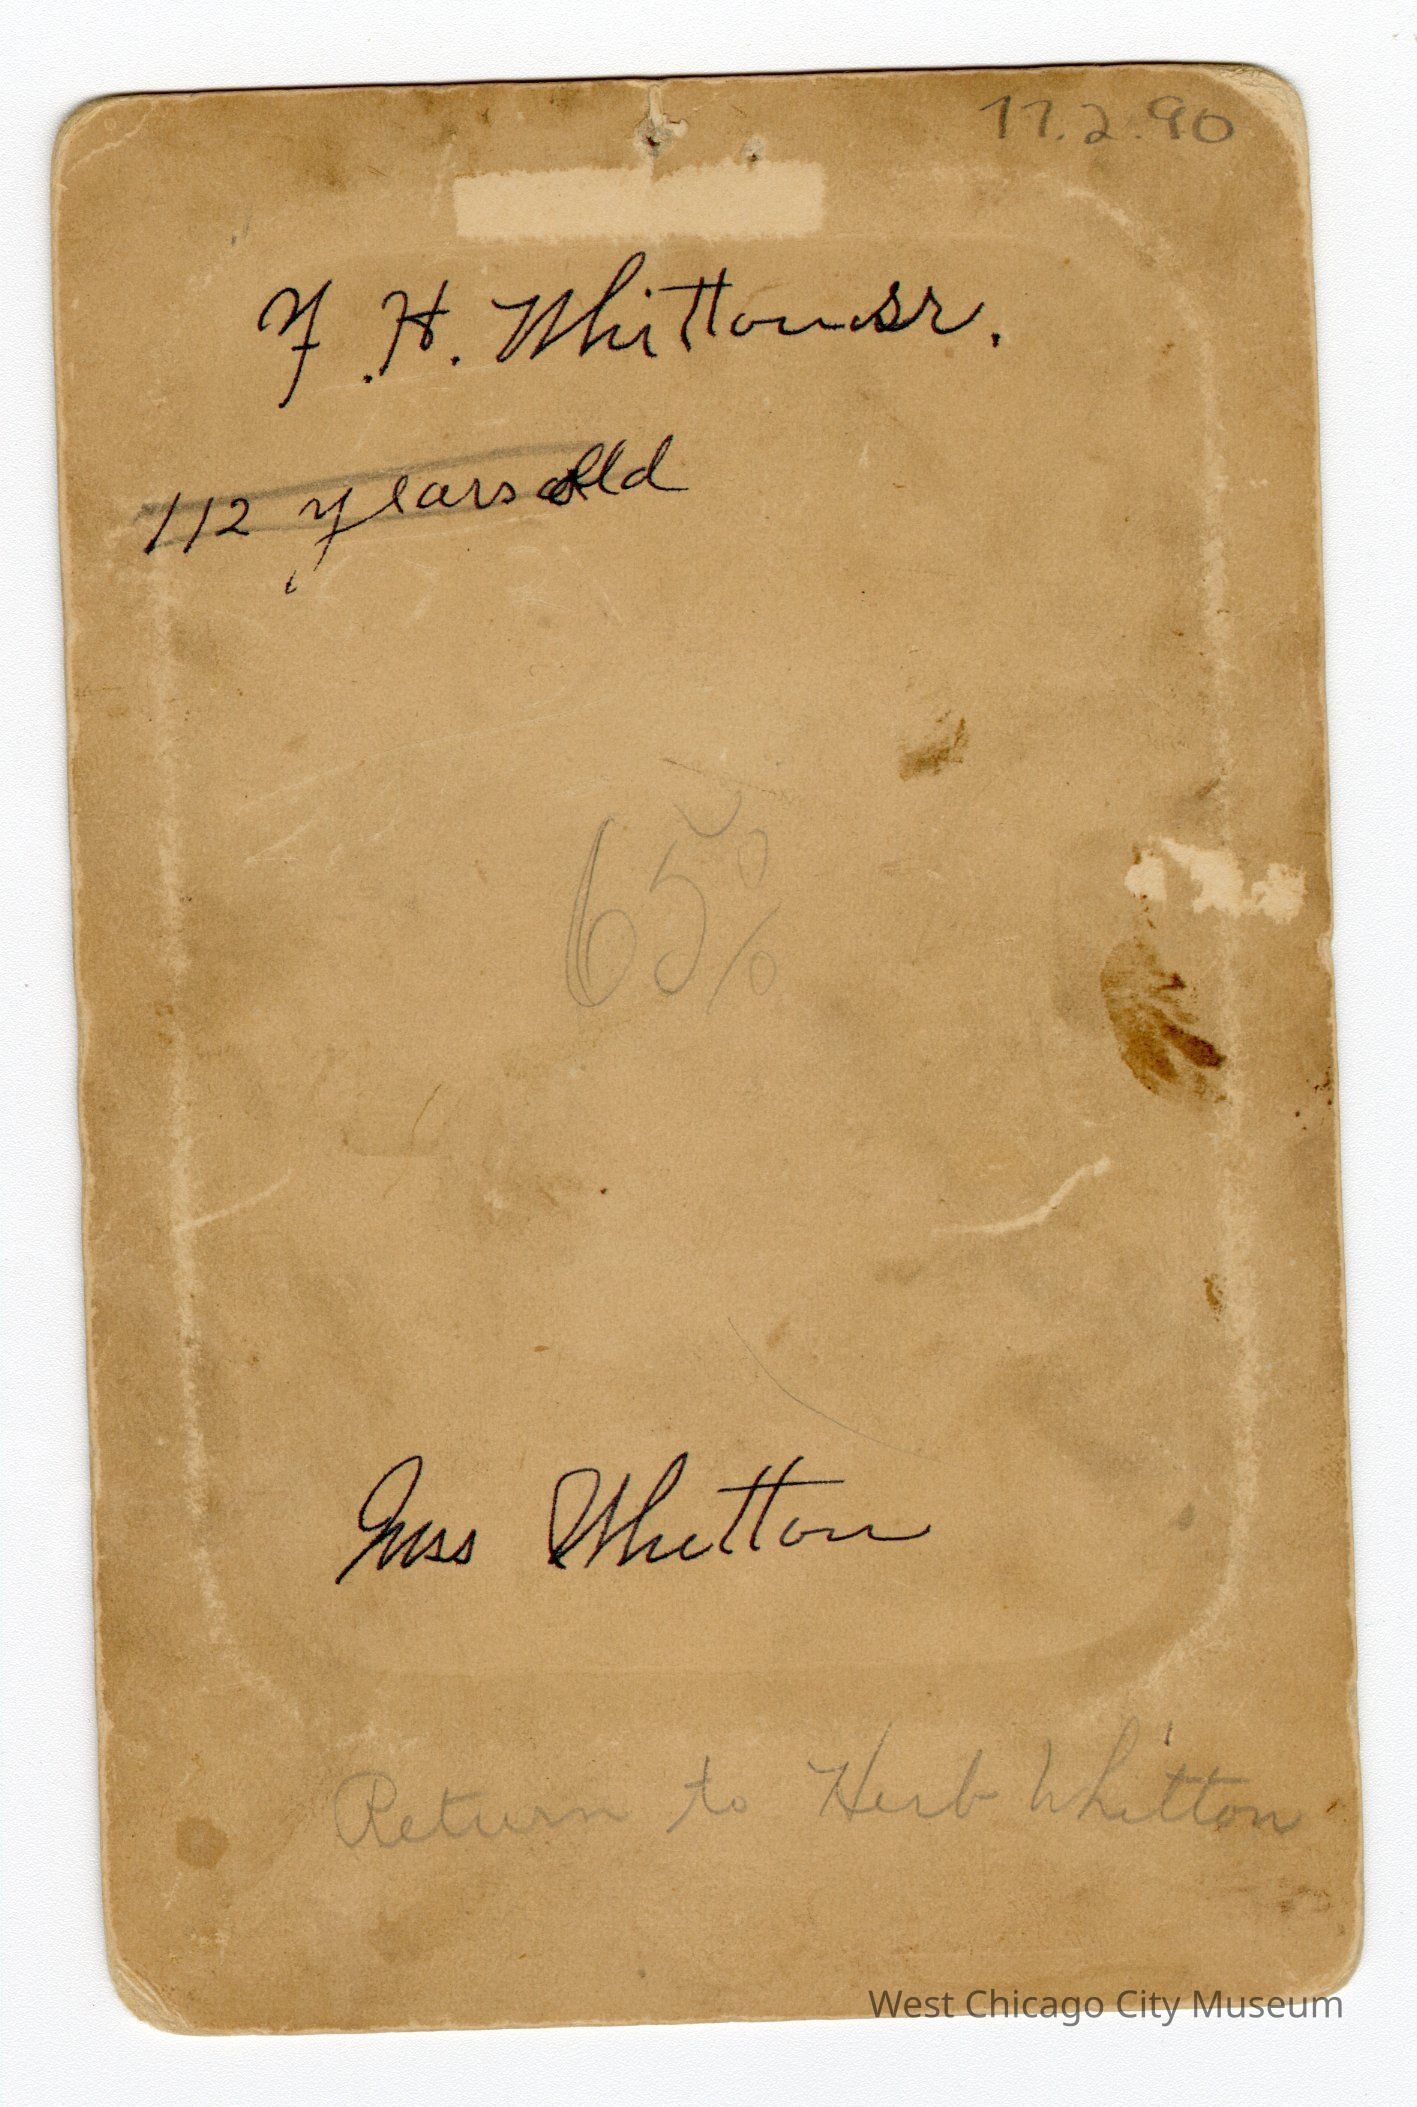 77.2.90
F. H. Whitton sr.
112 years old
65%
Miss Whitton
Return to Herb Whitton
West Chicago City Museum